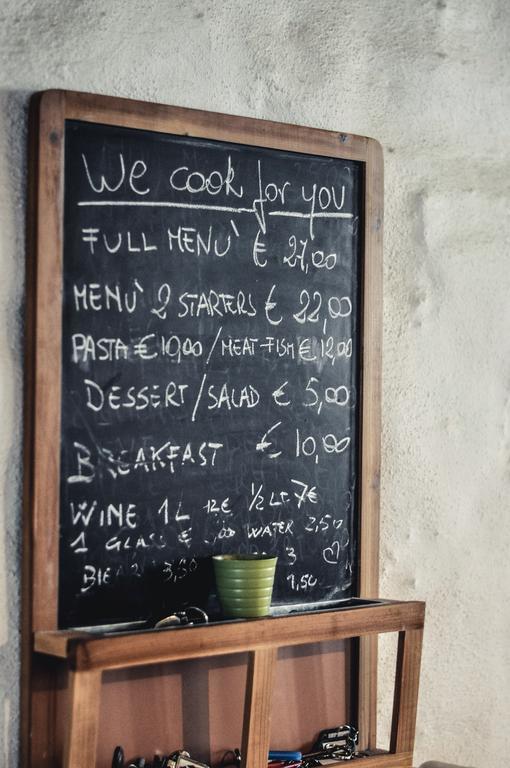 We cook for you
FULL MENU' € 27,00
MENU' 2 STARTERS € 22,00
PASTA € 10,00 / MEAT-FISH € 12,00
DESSERT / SALAD € 5,00
BREAKFAST € 10,00
WINE 1L 12€ 1/2 LT. 7€
1 GLASS € ,00 WATER 2,50
3,50 3
1,50